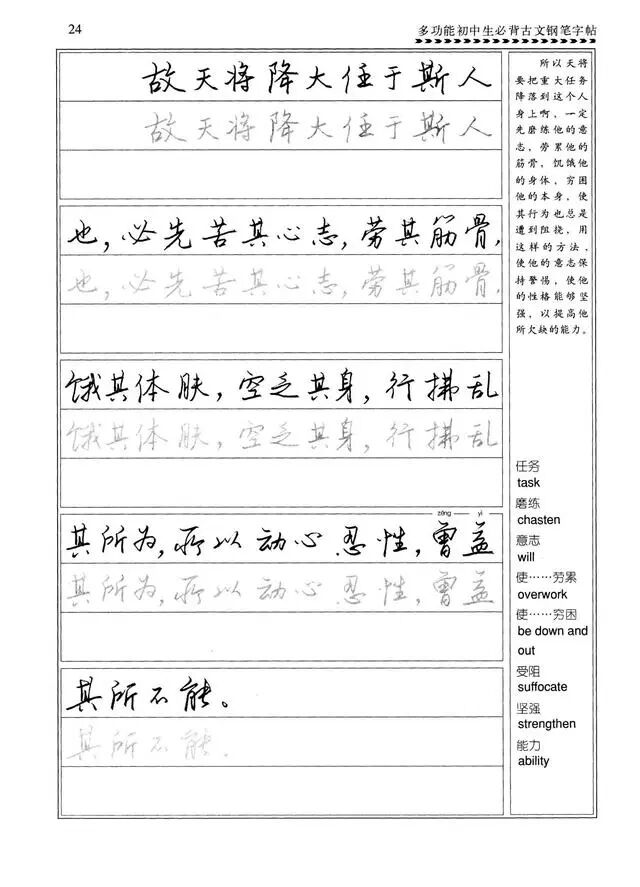 24
多功能初中生必背古文钢笔字帖
故天将降大任于斯人
故天将降大任于斯人
也，必先苦其心志，劳其筋骨，
也，必先苦其心志，劳其筋骨，
饿其体肤，空乏其身，行拂乱
饿其体肤，空乏其身，行拂乱
zēng yì
其所为，所以动心忍性，曾益
其所为，所以动心忍性，曾益
其所不能。
其所不能。
所以天将
要把重大任务
降落到这个人
身上啊，一定
先磨练他的意
志，劳累他的
筋骨，饥饿他
的身体，穷困
他的本身，使
其行为也总是
遭到阻挠，用
这样的方法，
使他的意志保
持警惕，使他
的性格能够坚
强，以提高他
所欠缺的能力。
任务
task
磨练
chasten
意志
will
使……劳累
overwork
使……穷困
be down and
out
受阻
suffocate
坚强
strengthen
能力
ability